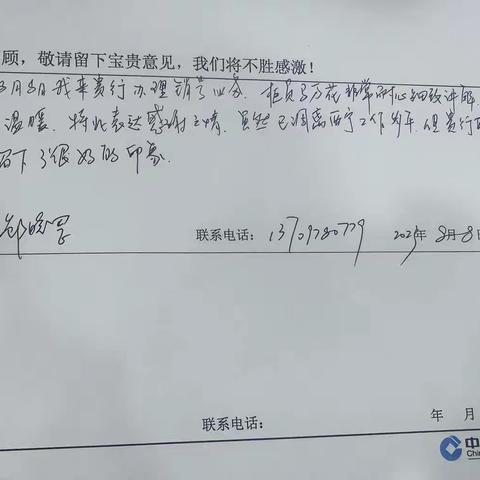 顾，敬请留下宝贵意见，我们将不胜感激！
8月8日我来贵行办理销号业务，柜员 非常耐心细致讲解
温暖，特此表达感谢之情，虽然已调离西宁工作多年，但贵行
留下了很好的印象。
联系电话：13709780779 2025年 8月8日
联系电话：
年 月
中
Chin